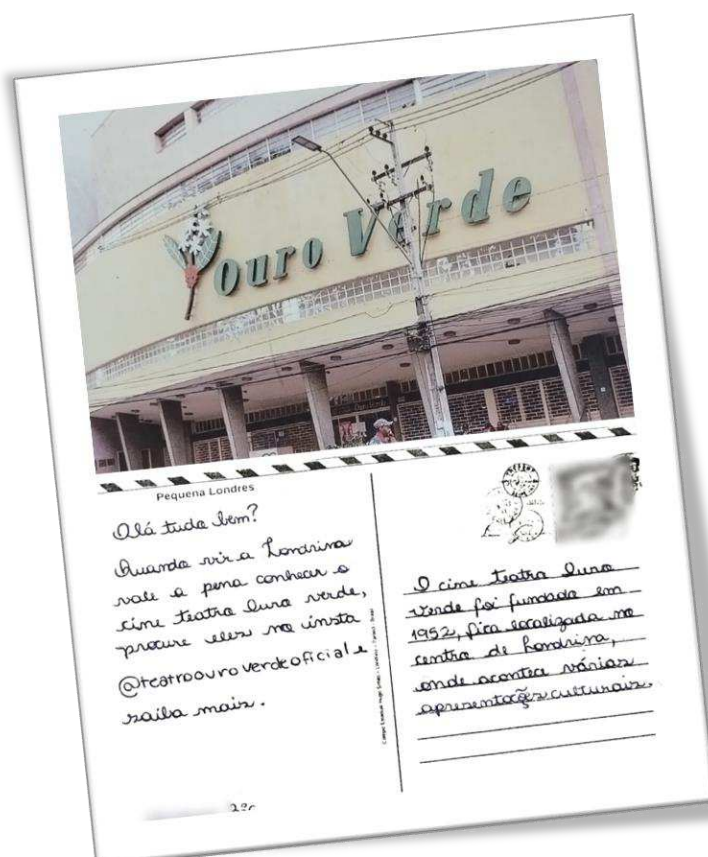 Ouro Verde
Pequena Londres
Olá tudo bem?
Quando vir a Londrina
vale a pena conhecer o
cine teatro Ouro verde,
procure eles no insta
@teatroouroverdeoficial e
saiba mais.
O cine teatro Ouro
Verde foi fundado em
1952, fica localizado no
centro de Londrina,
onde acontece várias
apresentações culturais.